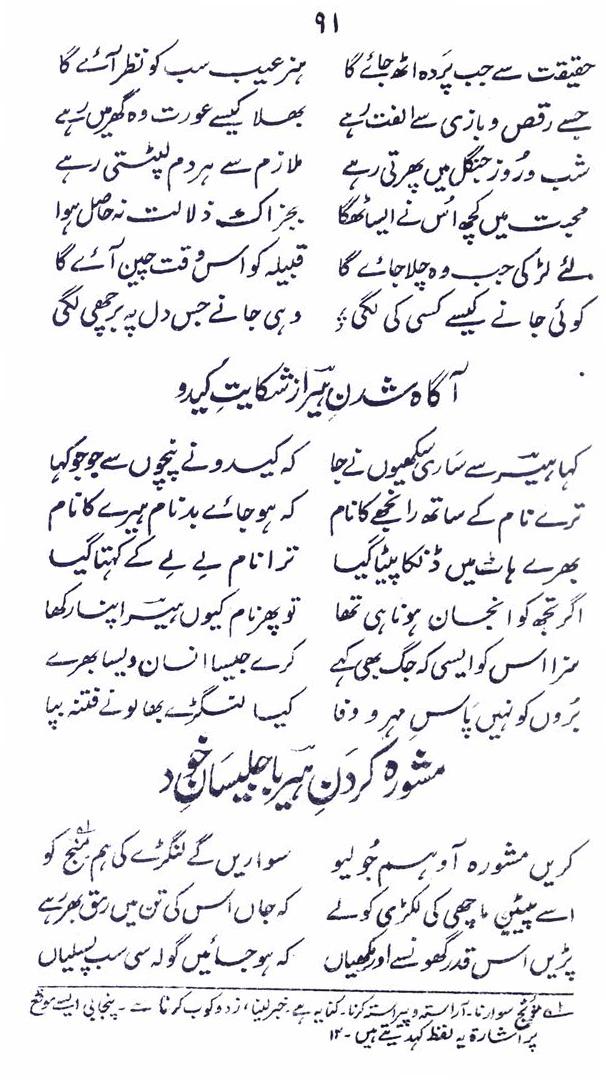 ۹۱
حقیقت سے جب پَردہ اٹھ جائے گا ہنر عیب سب کو نظر آئے گا
جسے رقص و بازی سے الفت رہے بھلا کیسے عورت وہ گھر میں رہے
شب و رُوز جنگل میں پھرتی رہے ملازم سے ہر دم لپٹتی رہے
محبت میں کچھ اُس نے ایسا ٹھگا بجز اک ذلالت نہ حاصل ہوا
لئے لڑکی جب وہ چلا جائے گا قبیلہ کو اس وقت چین آئے گا
کوئی جانے کیسے کسی کی لگی وہی جانے جس دل پہ برچھی لگی
آگاہ شدنِ ہیر از شکایتِ کیدو
کہا ہیر سے ساری سکھیوں نے جا کہ کیدو نے پنچوں سے جو جو کہا
ترے نام کے ساتھ رانجھے کا نام کہ ہو جائے بدنام ہیرے کا نام
بھرے ہاٹ میں ڈنکا پیٹا گیا ترا نام لے لے کے کہتا گیا
اگر تجھ کو انجان ہونا ہی تھا تو پھر نام کیوں ہیر اپنا رکھا
مزا اس کو ایسی کہ جگ بھی کہے کرے جیسا انسان ویسا بھرے
بُروں کو نہیں پَاسِ مہر و وفا کیا لنگڑے بھالو نے فتنہ بپا
مشورہ کردَنِ ہیر با جلیسَانِ خود
کریں مشورہ آو ہم جُولیو سواریں گے لنگڑے کی ہم مُنج کو
اسے پیٹیں ماچھی کی لکڑی کو لے کہ جاں اس کی تن میں رمق بھر رہے
پڑیں اس قدر گھونسے اور مکھیاں کہ ہو جائیں گولہ سی سب پسلیاں
لے مُونج سوارنا۔ آراستہ و پیراستہ کرنا۔ کنایہ ہے۔ خبر لینا، زدوکوب کرنا سے۔ پنجابی ایسے موقع
پر اشارۃً یہ لفظ کہہ دیتے ہیں۔ ۱۲